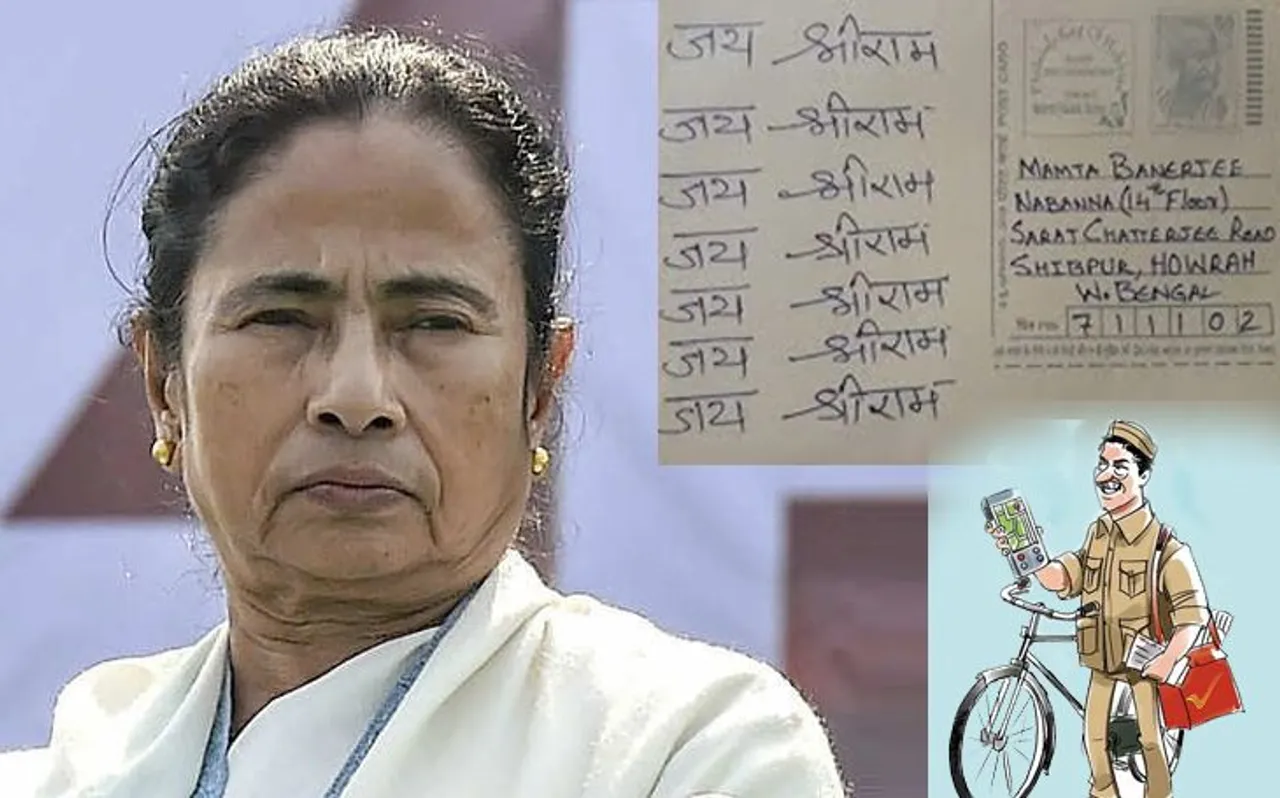 जय श्रीराम
जय श्रीराम
जय श्रीराम
जय श्रीराम
जय श्रीराम
जय श्रीराम
जय श्रीराम
POST CARD
MAMTA BANERJEE
NABANNA (14th Floor)
SARAT CHATTERJEE ROAD
SHIBPUR, HOWRAH
W. BENGAL
711102